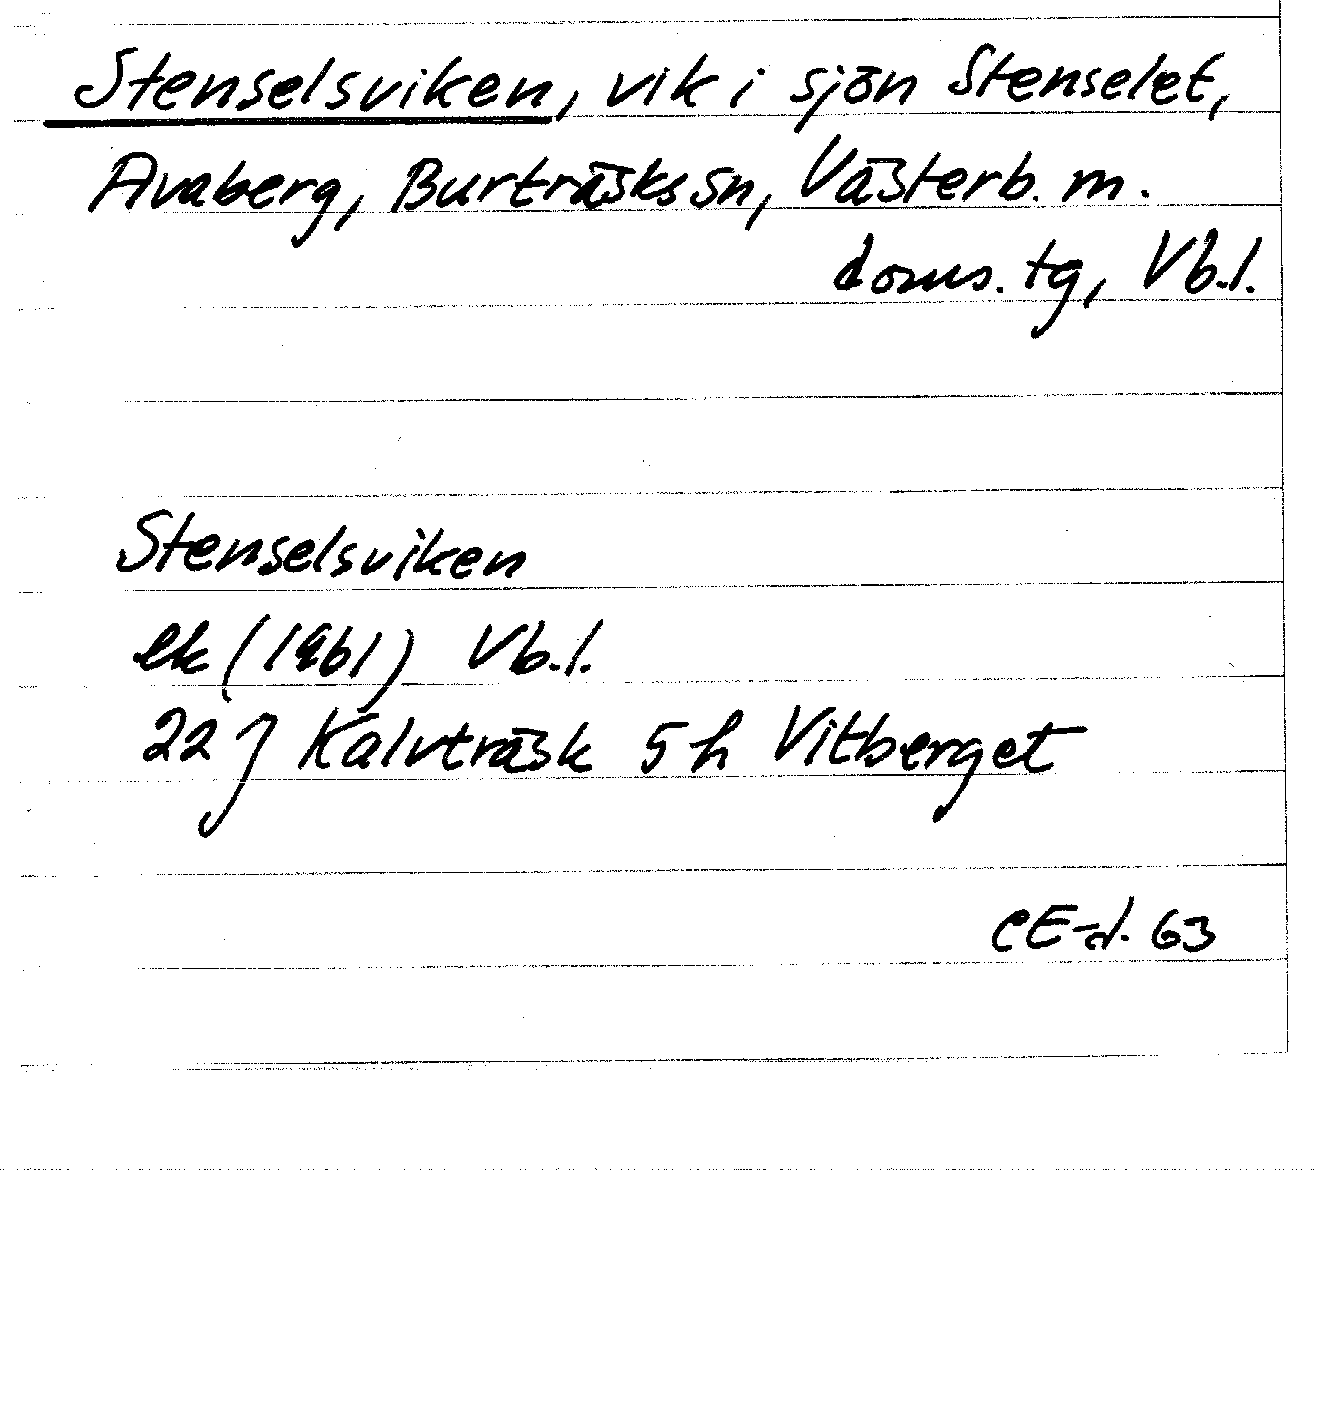 Stenselsviken, vik i sjön Stenselet,
Avaberg, Burträsks sn, Västerb. m.
doms. tg, Vb.l.
Stenselsviken
ek (1961) Vb.l.
22 J Kalvträsk 5 h Vitberget
CE-d. 63